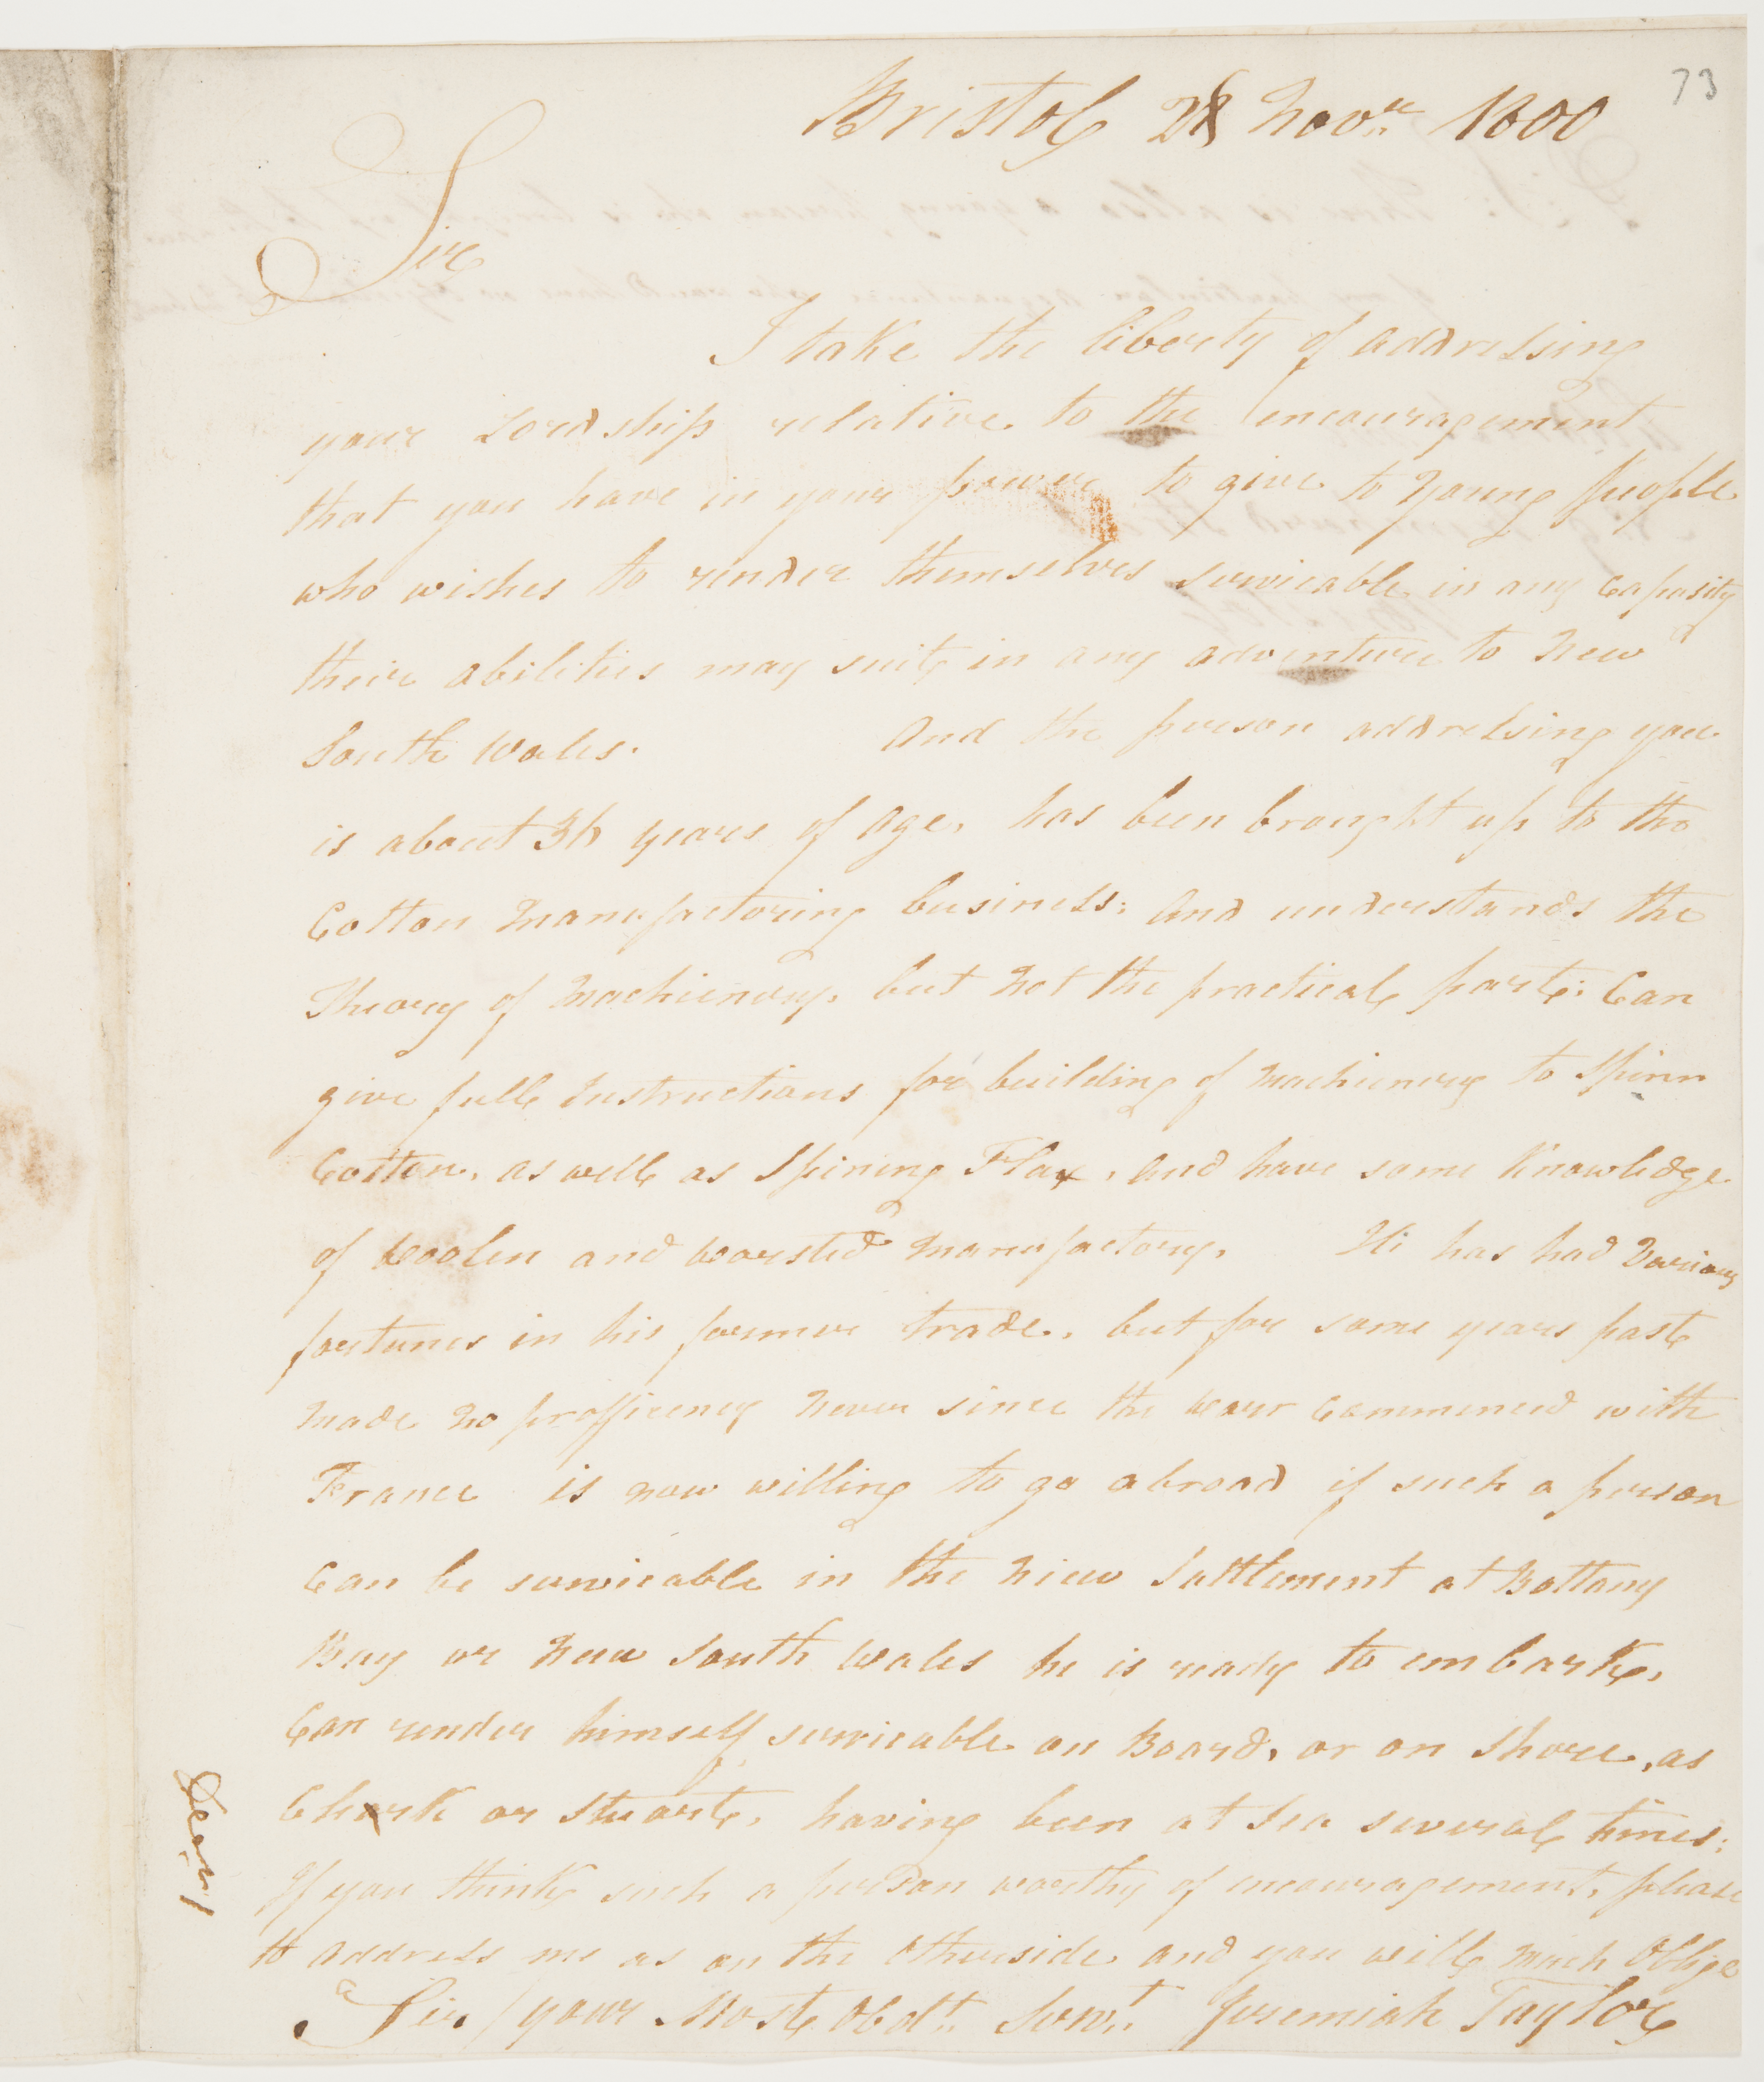 73
Bristol 28 Novr. 1800
Sir
I take the liberty of addressing
your Lordship relative to the encouragement
that you have in your power to give to Young People
who wishes to render themselves servicable in any Capasity
their abilities may suit, in any adventure to New
South Wales. And the person addressing you
is about 36 years of Age, has been brought up to the
Cotton Manufactoring business: And understands the
Theory of Machienery, but Not the practical part: Can
give full Instructions for building of Machienery to Spinn
Cotton, as well as Spining Flax, And have some Knowledge
of Woolen and Worsted Manufactory. He has had Various
fortunes in his former trade, but for some years past
Made No profficency Never since the Warr Commenced with
France is now willing to go abroad if such a person
Can be servicable in the New Sattlement at Bottany
Bay or New South Wales he is ready to embark,
Can render himself servicable on Board, or on Shore, as
Clark or Stuart, having been at Sea several times:
If you think such a person worthy of encouragement, please
to address me as on the Otherside and you will much Oblige
Sir / your Most Obdt. Servt. Jeremiah Taylor